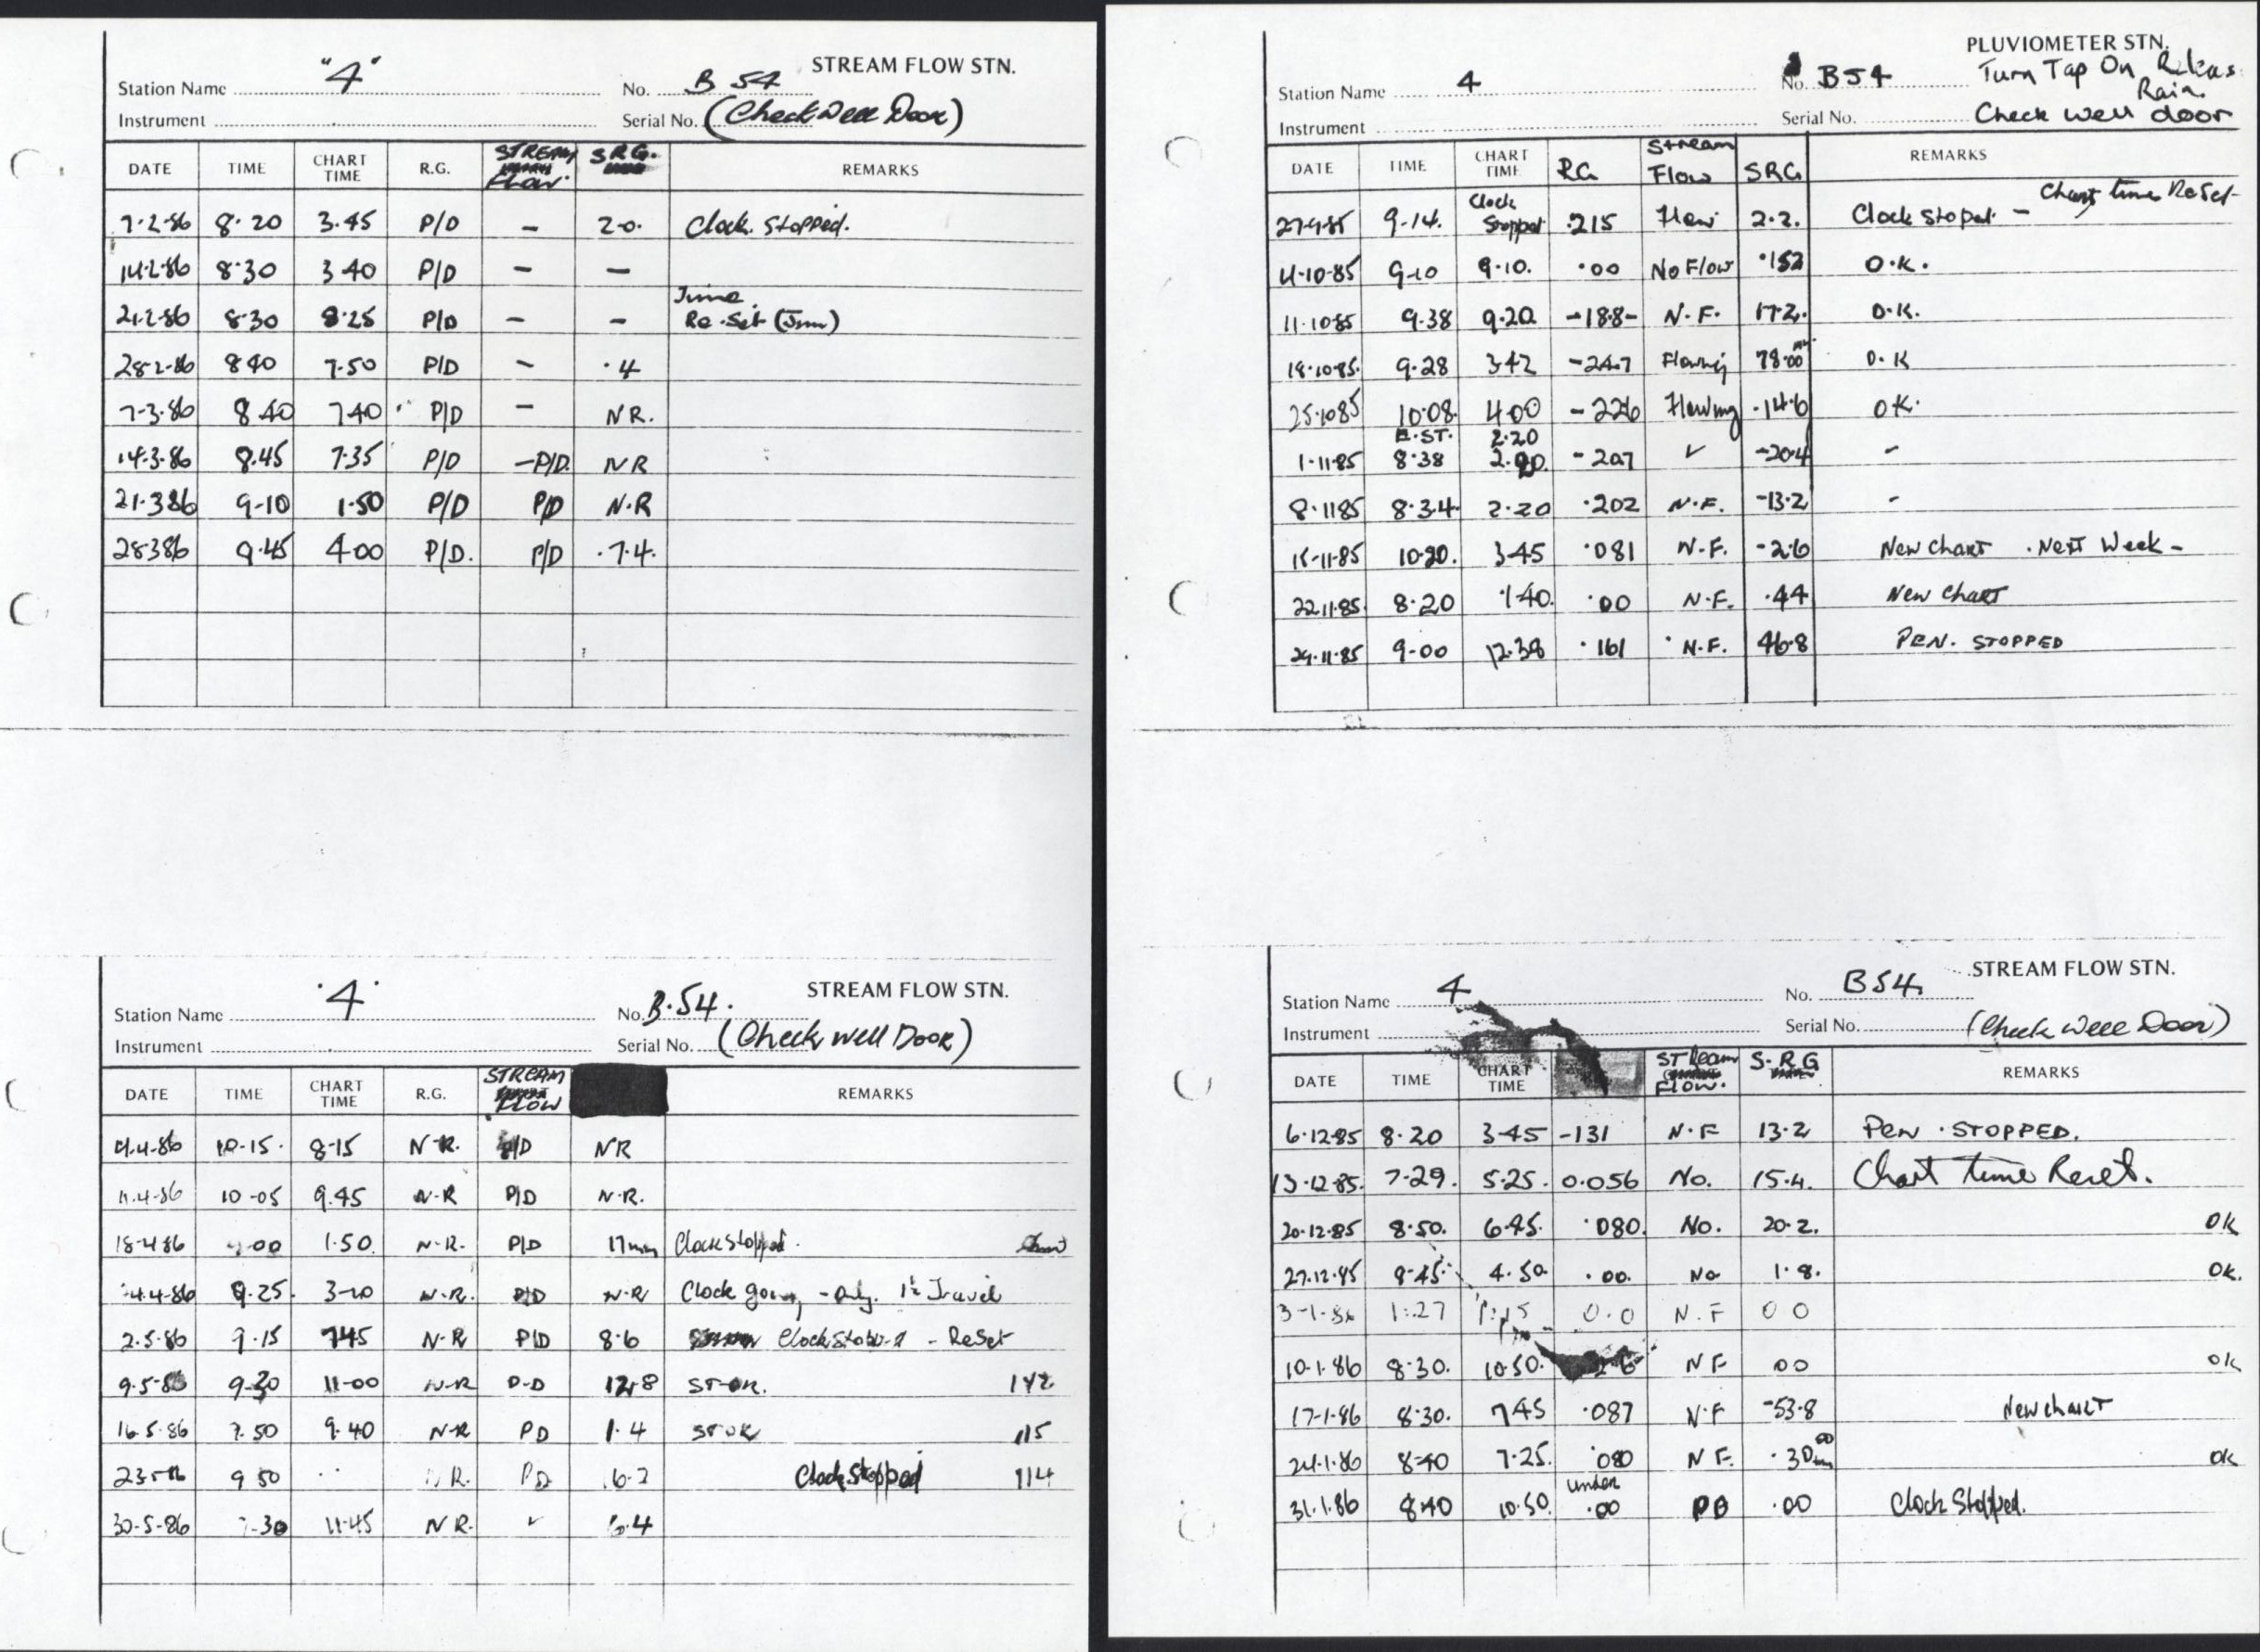 STREAM FLOW STN.
Station Name "4" No. B 54
Instrument Serial No. (Check Well Door)
DATE TIME CHART TIME R.G. STREAM FLOW S.R.G. REMARKS
7·2·86 8·20 3.45 P/D – 2·0. Clock Stopped.
14·2·86 8·30 3 40 P/D – –
21·2·86 8·30 8·25 P/D – – Time Re-Set (Jm)
28·2·86 8 40 7·50 P/D – ·4
7·3·86 8 40 7 40 P/D – NR.
14·3·86 8.45 7·35 P/D –P/D. NR
21·3 86 9-10 1·50 P/D P/D N·R
28 3 86 9·45 4 00 P/D. P/D ·7·4.
STREAM FLOW STN.
Station Name '4' No. B·54.
Instrument Serial No. (Check Well Door)
DATE TIME CHART TIME R.G. STREAM FLOW REMARKS
4·4·86 10·15· 8-15 N·R. P/D NR
11·4·86 10-05 9.45 N·R P/D N·R.
18·4 86 00 1·50. N·R. P/D 17mm Clock Stopped.
4·4·86 9.25. N·R. P/D N·R Clock going, - Only 1½ Travel
2·5·86 9·15 7 45 N·R P/D 8·6 Clock Stopped - ReSet
9·5·86 9·30 11-00 N·R P·D 12·8 ST·OK. 142
16·5·86 7.50 9·40 N·R PD 1·4 ST OK 115
9 50 N.R. PD Clock Stopped 114
30·5·86 11·45 N R. ✓ 6·4
PLUVIOMETER STN.
Station Name 4 No. B54 Turn Tap On Releas Rain
Instrument Serial No. Check well door
DATE TIME CHART TIME RG Stream Flow SRG REMARKS
27·9·85 9·14. Clock Stopped ·215 Flow 2·2. Clock Stoped – Chart time ReSet
4·10·85 9-10 9·10. ·00 No Flow ·152 O·K.
11·10 85 9.38 9·20 -18·8- N·F. 17·2. O·K.
18·10·85. 9·28 3 42 -24·7 Flowing 78·00 O·K
25·10 85 10·08. 4 00 -226 Flowing ·14·6 OK.
1·11·85 E.ST. 8·38 2·20 -20·7 ✓ -20·4 –
8·11 85 8·34 2·20 ·202 N·F. -13·2 –
15·11·85 10·20. 3·45 ·081 N·F. -2·6 New Chart . Next Week –
22·11·85 8·20 1·40. ·00 N·F. ·44 New Chart
29·11·85 9-00 12·38 ·161 N.F. 46·8 PEN. STOPPED
STREAM FLOW STN.
Station Name 4 No. B54.
Instrument Serial No. (Check Well Door)
DATE TIME CHART TIME Stream Flow. S.R.G REMARKS
6·12·85 8·20 3·45 -131 N·F 13·2 Pen . STOPPED.
13·12·85. 7·29. 5·25. 0.056 No. 15·4. Chart time Reset.
20·12·85 8·50. 6·45. ·080. No. 20·2. OK
27·12·85 8·45· 4·50. ·00. No 1·8. OK.
3-1-86 1:27 0.0 N.F 0 0
10·1·86 8·30. 10·50. N F 00 OK
17·1·86 8·30. 7 45 ·087 N·F -53·8 New chart
24·1·86 8·40 7·25. 080 N F. OK
31·1·86 8·40 10·50. under ·00 PD ·00 Clock Stopped.